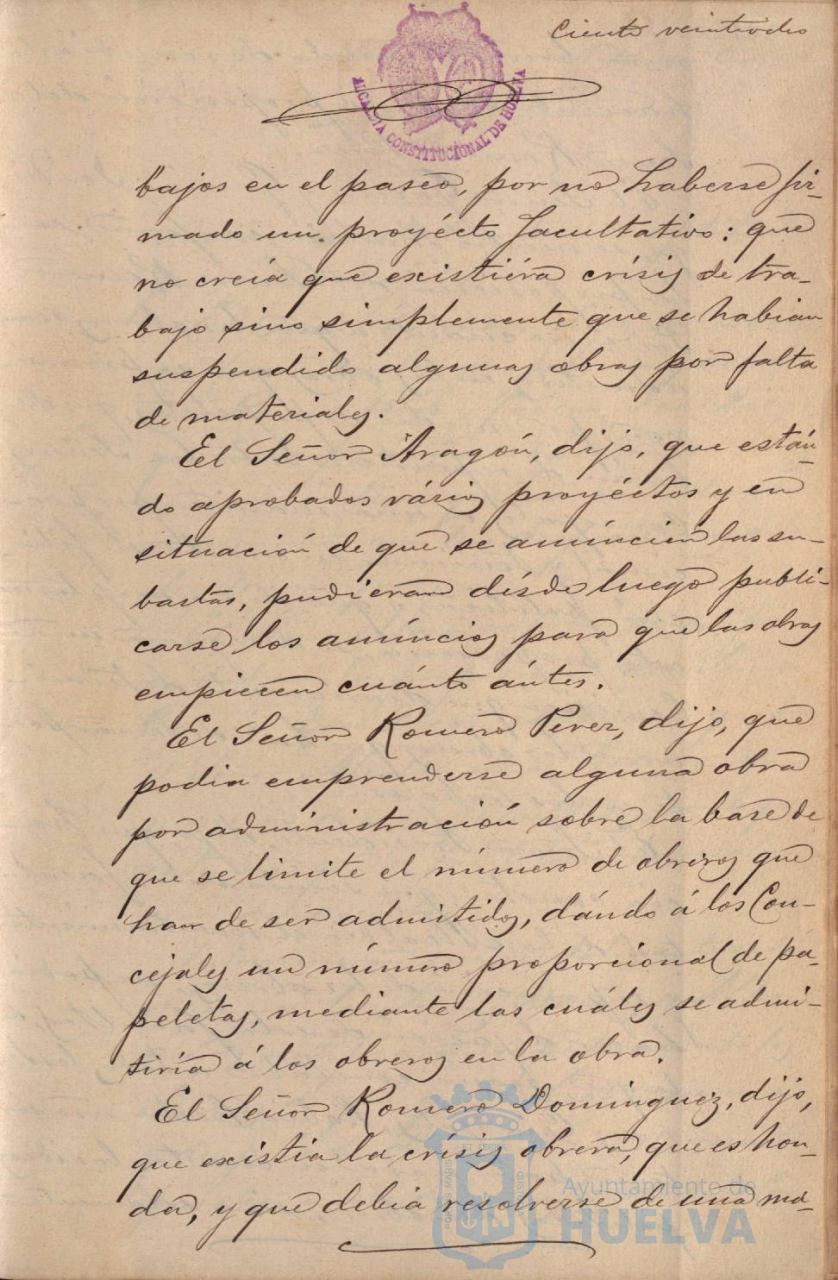 Ciento veintidos
ALCALDIA CONSTITUCIONAL DE HUELVA
bajos en el paseo, por no haberse fir-
mado un proyécto facultativo: que
no creía que existiéra crísis de tra-
bajo sino simplemente que se habian
suspendido algunas obras por falta
de materiales.
El Señor Aragón, dijo, que están-
do aprobados vários proyéctos y en
situación de que se anúncien las su-
bastas, pudieran désde luego publi-
carse los anúncios para que las obras
empiecen cuánto ántes.
El Señor Romero Perez, dijo, que
podia emprenderse alguna obra
por administración sobre la base de
que se limite el número de obreros que
han de ser admitidos, dándo á los Con-
cejales un número proporcional de pa-
peletas, mediante las cuáles se admi-
tiría á los obreros en la obra.
El Señor Romero Dominguez, dijo,
que existia la crísis obrera, que es hon-
da, y que debia resolverse de una ma-
Ayuntamiento de
HUELVA